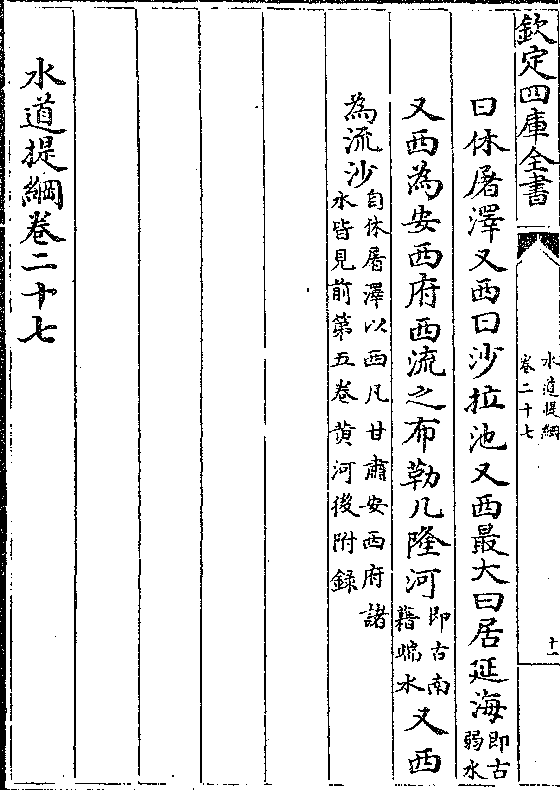 欽定四庫全書
水道提綱
卷二十七
十一
曰休屠澤又西曰沙拉池又西最大曰居延海即古
弱水
又西為安西府西流之布勒几隆河即古南
藉端水又西
為流沙自休屠澤以西凡甘肅安西府諸
水皆見前第五卷黄河後附録
水道提綱卷二十七